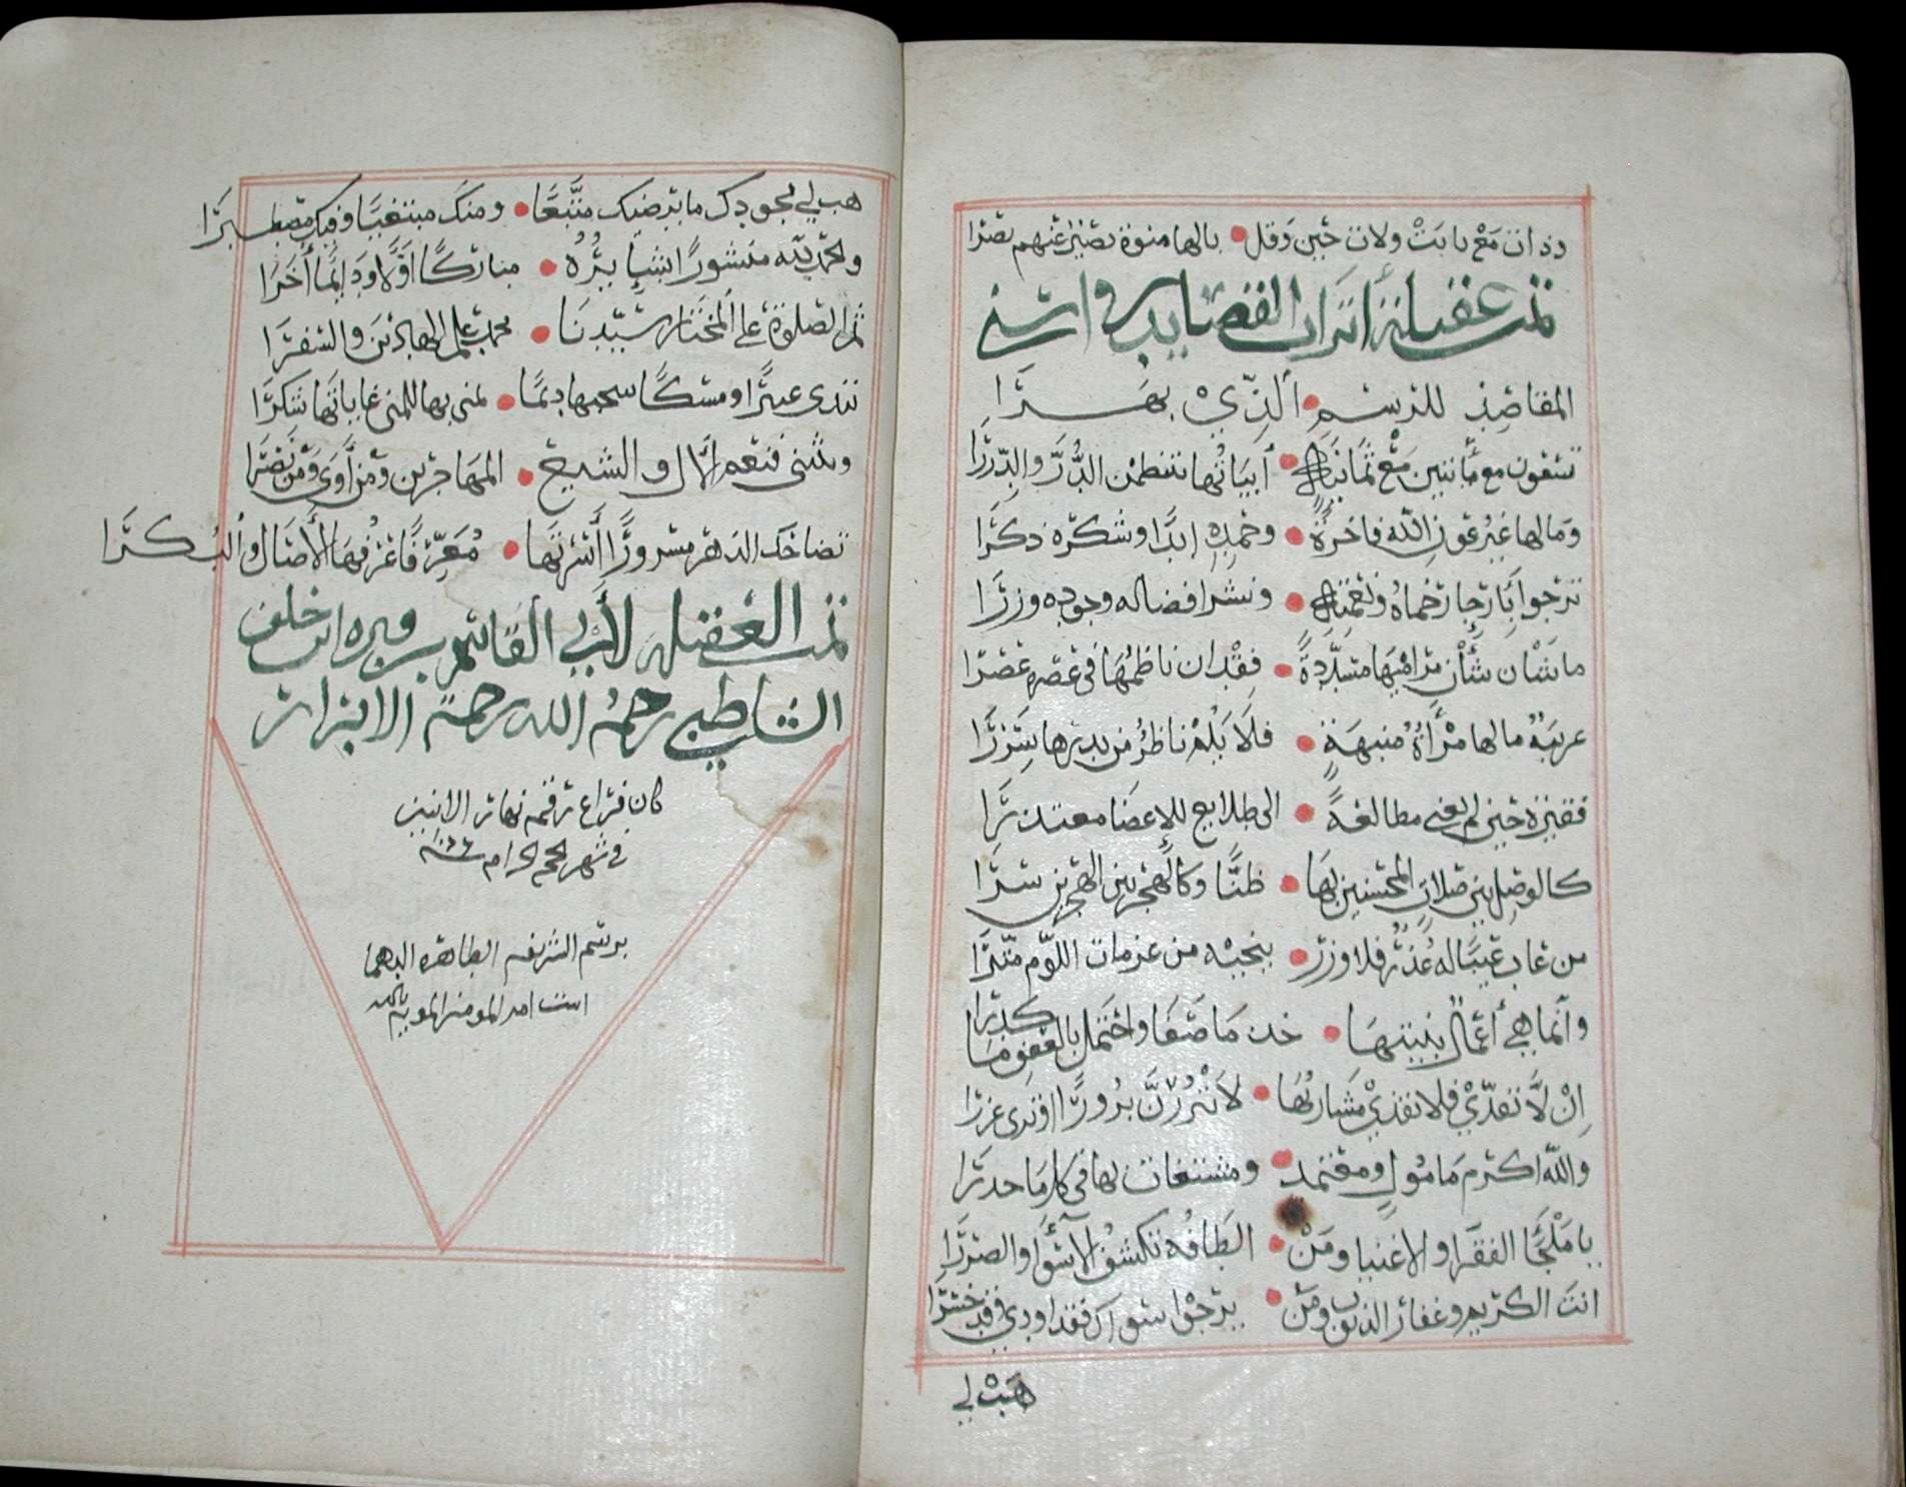 وذات مع يا بت ولات حين وقل • بالها منوة نصير عنهم نصرا
تمت عقيلة أتراب القصايد في اسنى
المقاصد للرسم • الذي بهرا
تسعون مع مائتين مع ثمانية • أبياتها ينتظمن الدر والدررا
وما لها غير عون الله فاخرة • وحمده ابدا وشكره ذكرا
ترجوا بأرجاء رحماه ونعمته • ونشر افضاله وجوده وزرا
ما شان شأن مراميها مسددة • فقدان ناظمها في عصره عصرا
غريبة ما لها مرآة منبهة • فلا يلم ناظر من بدرها سررا
فقيرة حين لم تغني مطالعة • الى طلايع للإغضا معتذرا
كالوصل بين صلات المحسنين بها • ظنا وكالهجر بين الهجرين سرا
من عاب عيبا له عذر فلا وزر • ينجيه من عزمات اللوم متئرا
وانما هي أعمال بنيتها • خذ ما صفا واحتمل بالعفو ما كدرا
إن لا تقذي فلا تقذي مشاربها • لا تنزرن نزورا او ترى غزرا
والله اكرم مامول ومعتمد • ومستغاث بها في كل ما حدرا
يا ملجأ الفقرا والاغنيا ومن • الطافه تكشف الأسوا والضررا
انت الكريم وغفار الذنوب ومن • يرجوا سواك فقد اودي وقد خسرا
هب لي
هب لي بجودك ما يرضيك متبعا • ومنك مبتغيا وفيك مصطبرا
والحمد لله منشورا بشايره • مباركا اولا ودايما أخرا
ثم الصلوة على المختار سيدنا • محمد علم الهادين والسفرا
تندى عبيرا ومسكا سحبها ديما • تمنى بها للمنى غاياتها شكرا
وتثني فتعم الآل والشيع • المهاجرين ومن آوى ومن نصرا
تضاحك الزهر مسرورا أسرتها • معرفا عرفها الأصال والبكرا
تمت العقيله لأبي القاسم بن فيره ابن خلف
الشاطبي رحمه الله رحمة الابرار
كان فراغ رقمه نهار الاثنين
في شهر الحرام سنه
برسم الشريفه الطاهره
ابنت امير المومنين المويد بالله